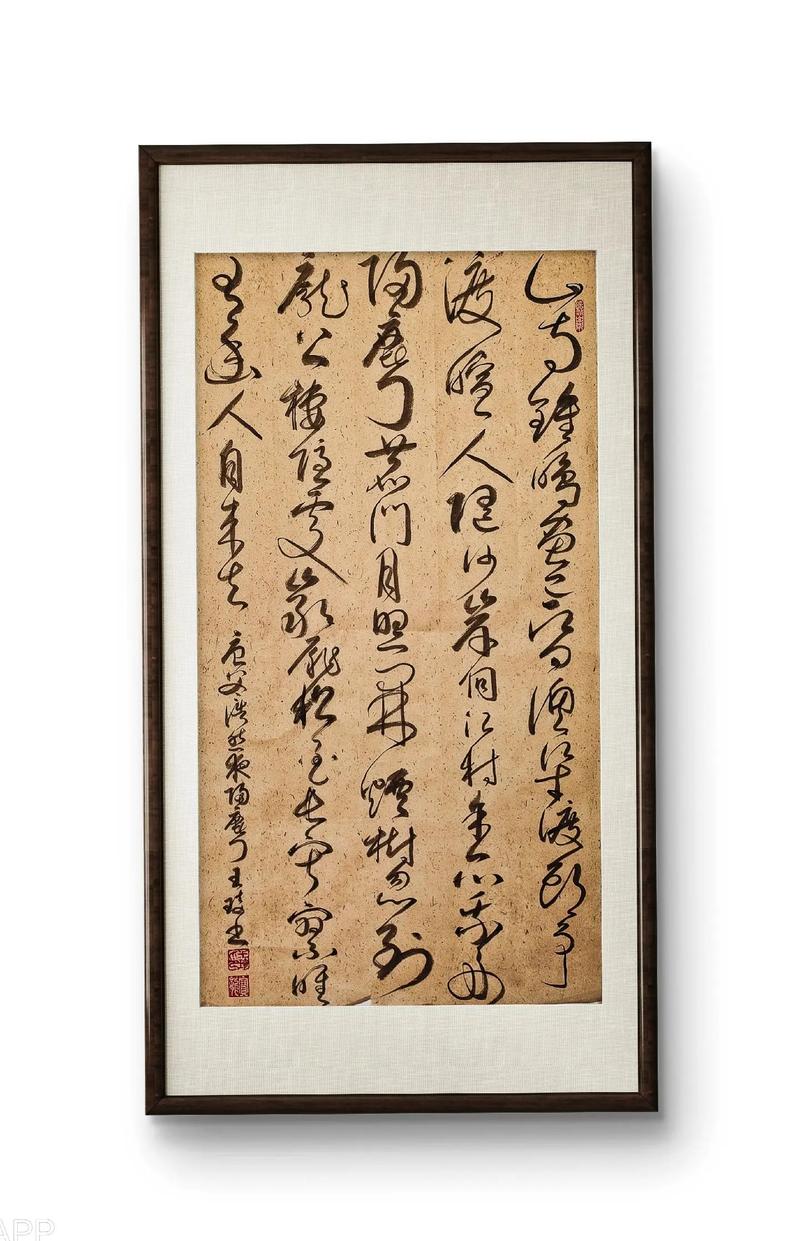 山寺鐘鳴晝已昏漁梁渡頭爭
渡喧人隨沙岸向江村余亦乘舟
歸鹿門鹿門月照開煙樹忽到
龐公棲隱處巖扉松徑長寂寥唯
有幽人自來去
唐孟浩然夜歸鹿門 王 書
APP